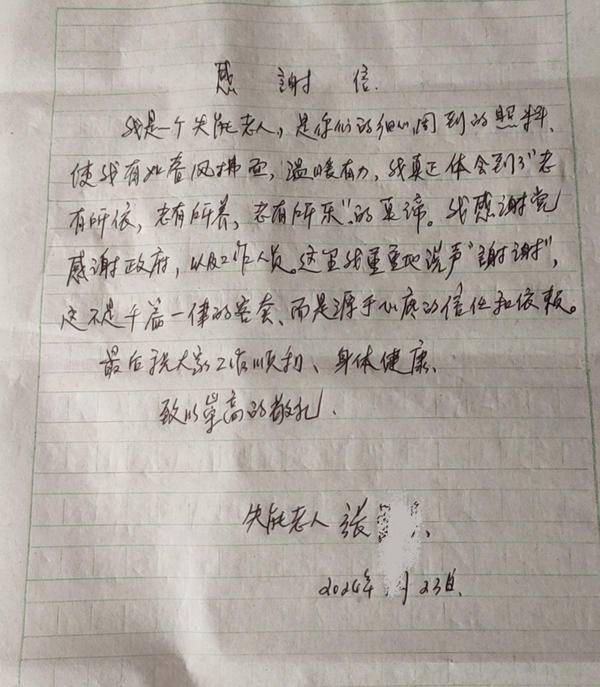 感謝信
我是一个失能老人，是你们的细心周到的照料、
使我有如春风拂面，温暖有力，我真正体会到了“老
有所依，老有所养，老有所乐”的真谛。我感谢党
感谢政府，以及工作人员。这里我重重地说声“謝谢”，
这不是千篇一律的客套、而是源于心底的信任和依赖。
最后祝大家工作顺利、身体健康、
致以崇高的敬礼.
失能老人 张
2024年 月23日.